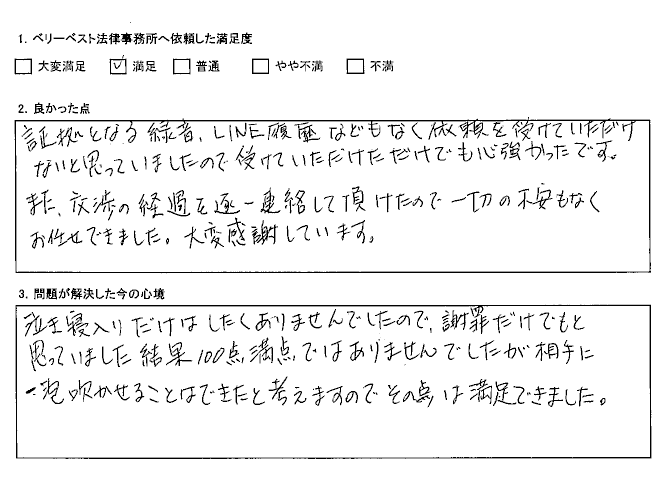 1. ベリーベスト法律事務所へ依頼した満足度
□ 大変満足 ☑ 満足 □ 普通 □ やや不満 □ 不満
2. 良かった点
証拠となる録音、LINE履歴などもなく依頼を受けていただけ
ないと思っていましたので受けていただけただけでも心強かったです。
また、交渉の経過を逐一連絡して頂けたので一切の不安もなく
お任せできました。大変感謝しています。
3. 問題が解決した今の心境
泣き寝入りだけはしたくありませんでしたので、謝罪だけでもと
思っていました結果100点満点ではありませんでしたが相手に
一泡吹かせることはできたと考えますのでその点は満足できました。